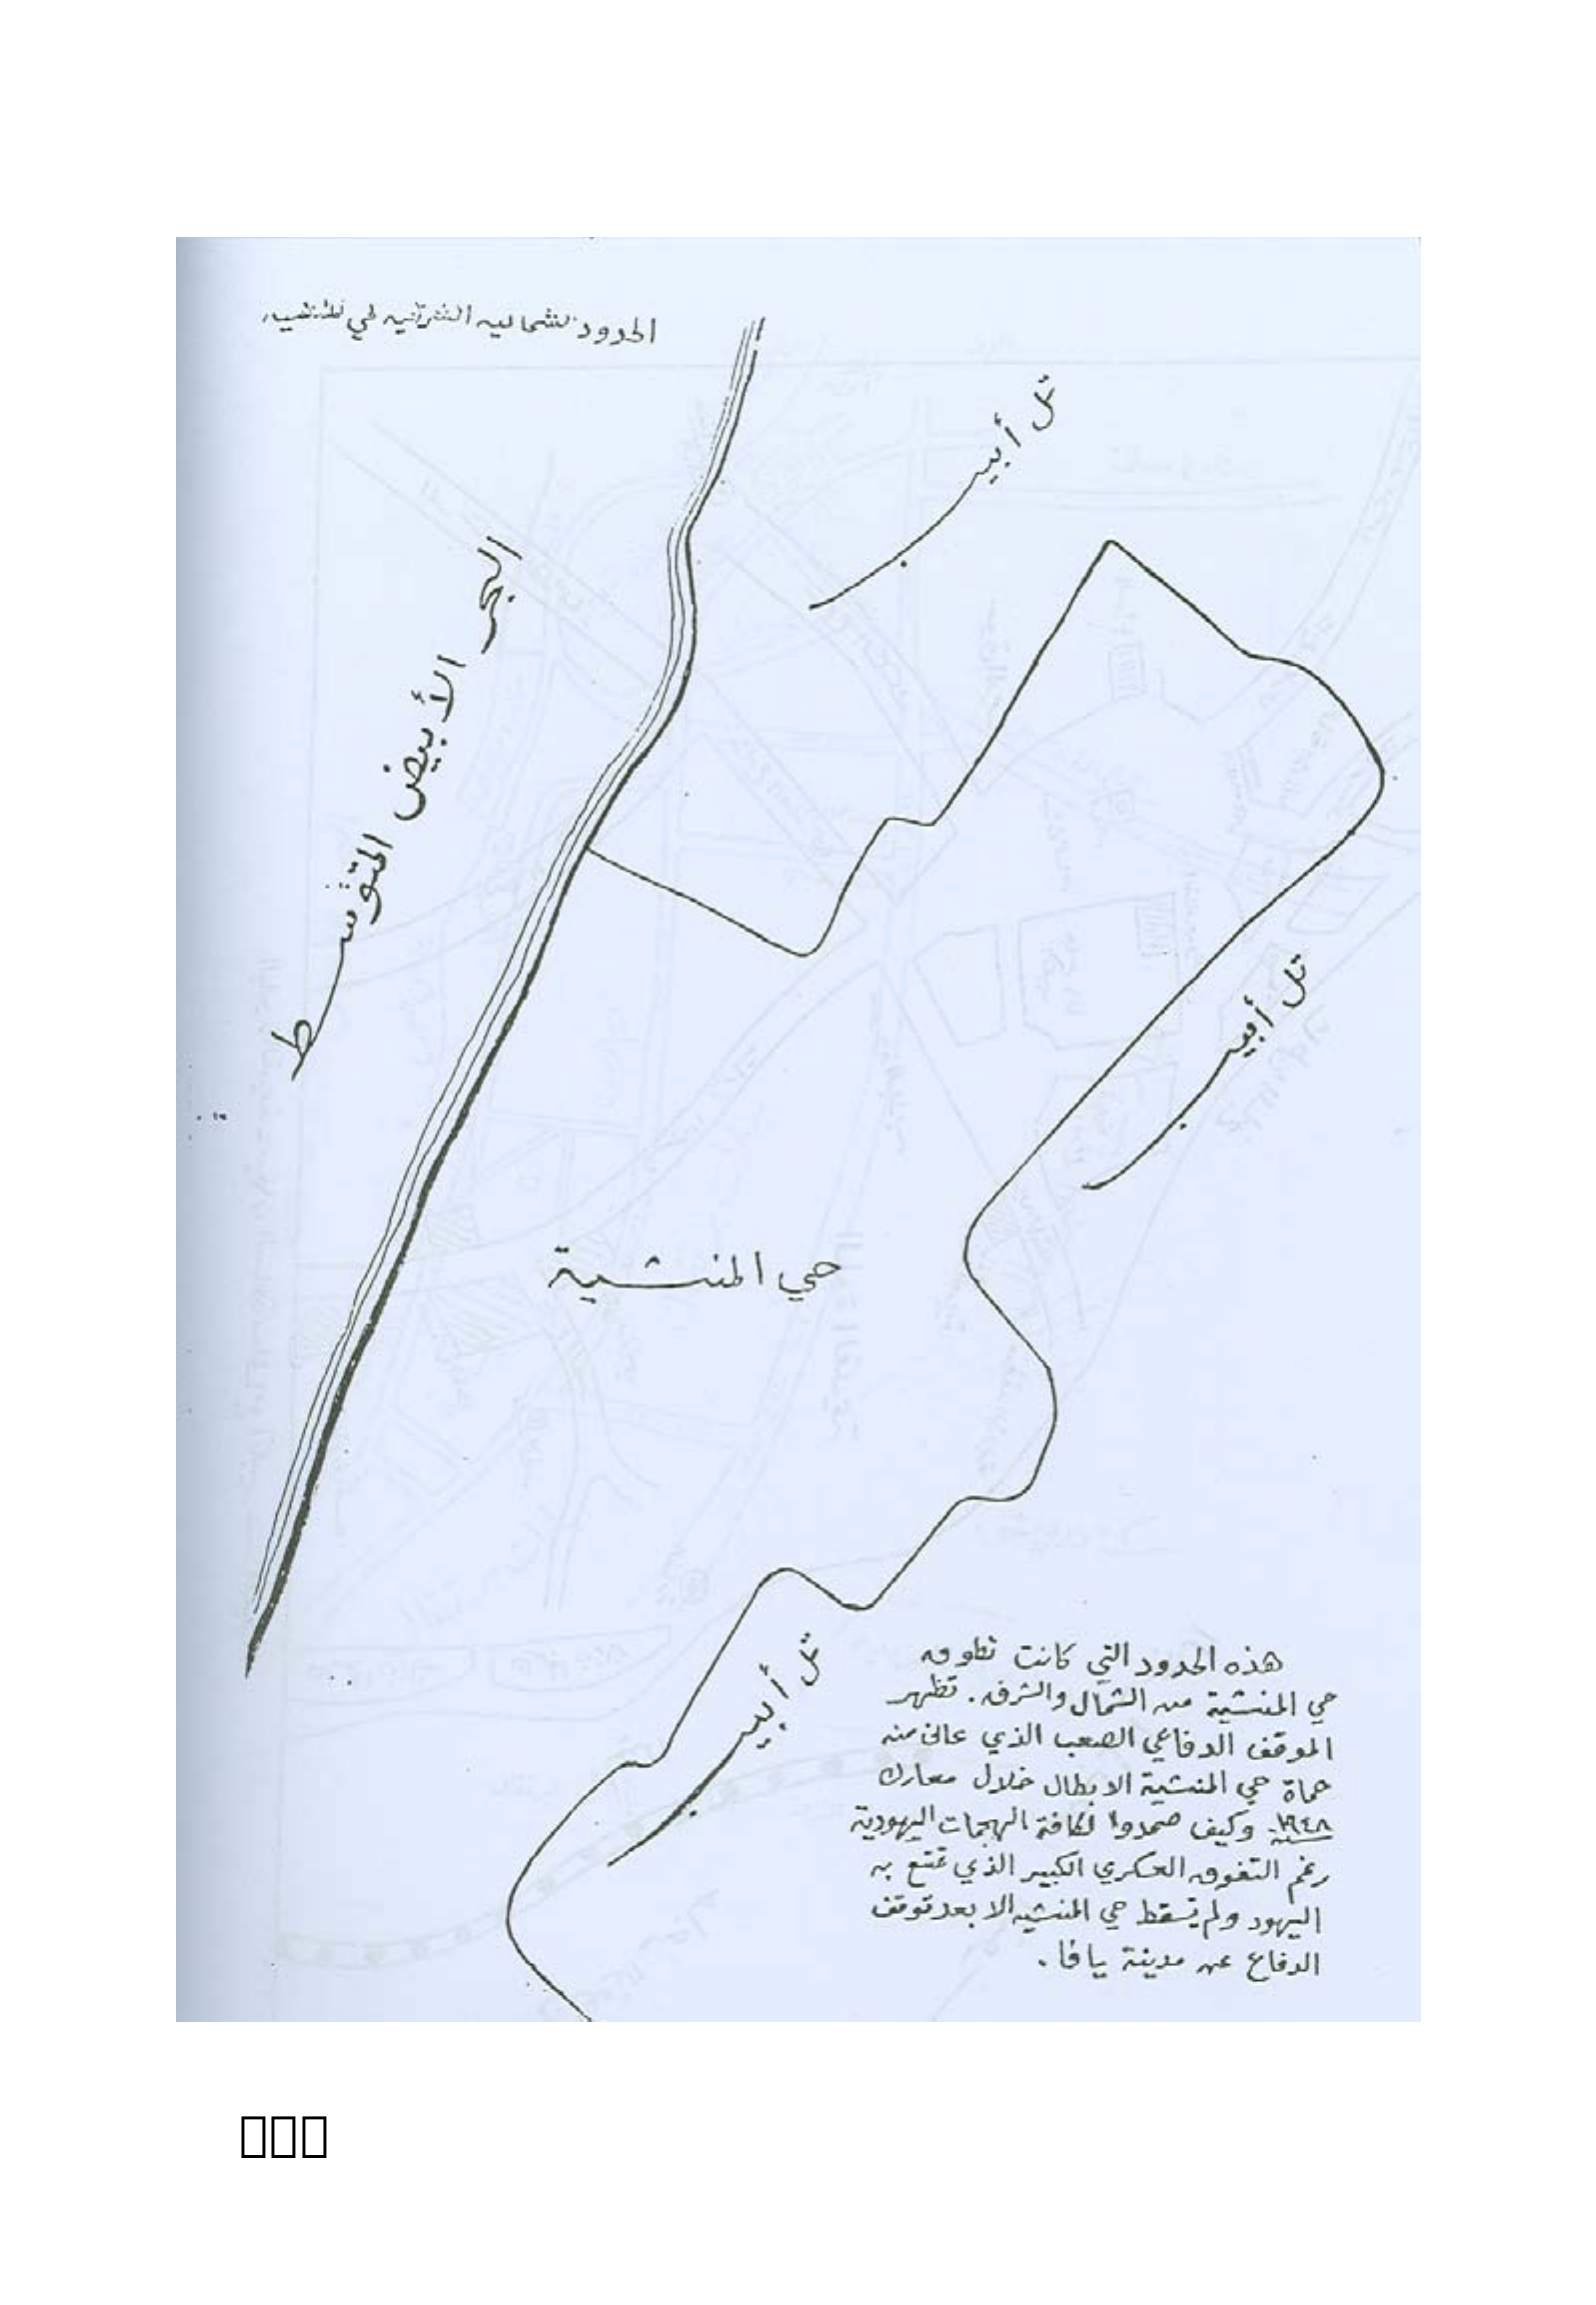 الحدود الشماليه الشرقيه لحي المنشيه
تل أبيب
البحر الأبيض المتوسط
تل أبيب
حي المنشية
تل أبيب
هذه الحدود التي كانت تطوق
حي المنشية من الشمال والشرق. تظهر
الموقف الدفاعي الصعب الذي عانى منه
حماة حي المنشية الابطال خلال معارك
سنة ١٩٤٨ وكيف صمدوا لكافة الهجمات اليهودية
رغم التفوق العسكري الكبير الذي تمتع به
اليهود ولم يسقط حي المنشيه الا بعد توقف
الدفاع عن مدينة يافا.